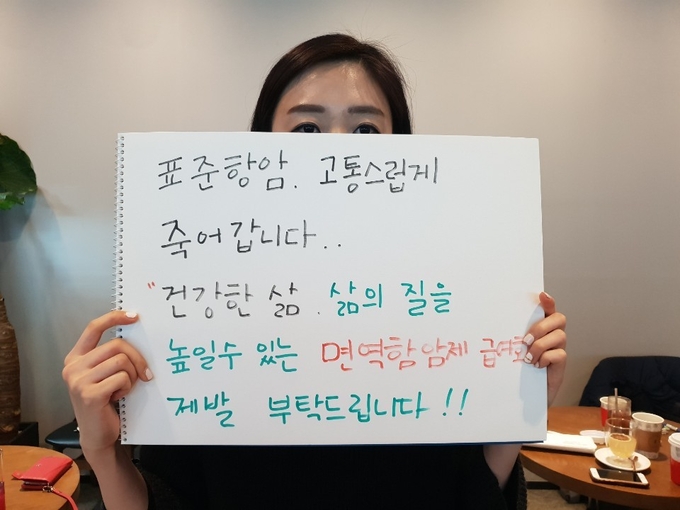 표준항암. 고통스럽게
죽어갑니다..
"건강한 삶. 삶의 질을
높일수 있는 면역항암제 급여화
제발 부탁드립니다!!